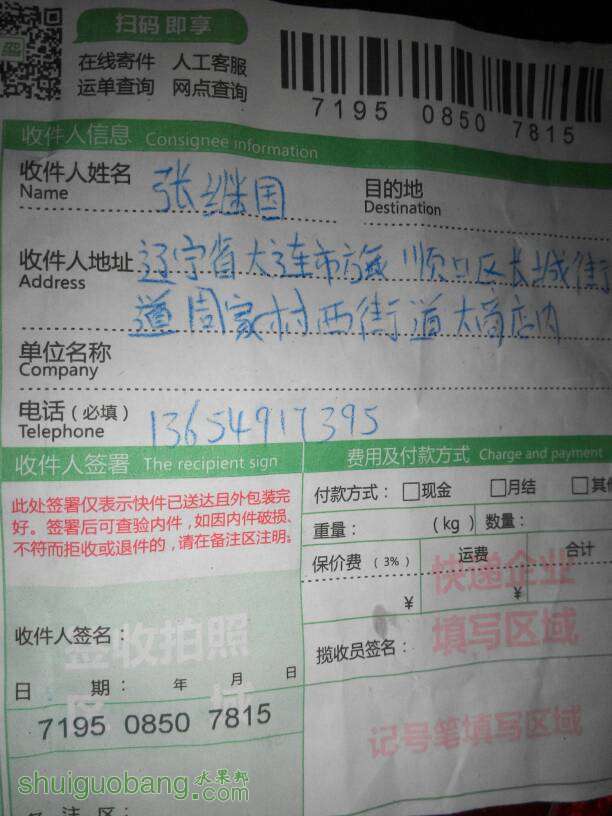 扫码 即享
在线寄件 人工客服
运单查询 网点查询
7195 0850 7815
收件人信息 Consignee information
收件人姓名 张继国 目的地
Name Destination
收件人地址 辽宁省大连市旅顺口区长城街
Address
道周家村西街道大商店内
单位名称
Company
电话(必填) 13654917395
Telephone
收件人签署 The recipient sign
费用及付款方式 Charge and payment
此处签署仅表示快件已送达且外包装完
好。签署后可查验内件,如因内件破损、
不符而拒收或退件的,请在备注区注明。
付款方式: 现金 月结 其他
重量: (kg) 数量:
保价费(3%) 运费 合计
¥ ¥
快递企业
填写区域
收件人签名:
签收拍照
区域
揽收员签名:
日 期: 年 月 日
7195 0850 7815
记号笔填写区域
shuiguobang.com 水果邦
备 注 区: